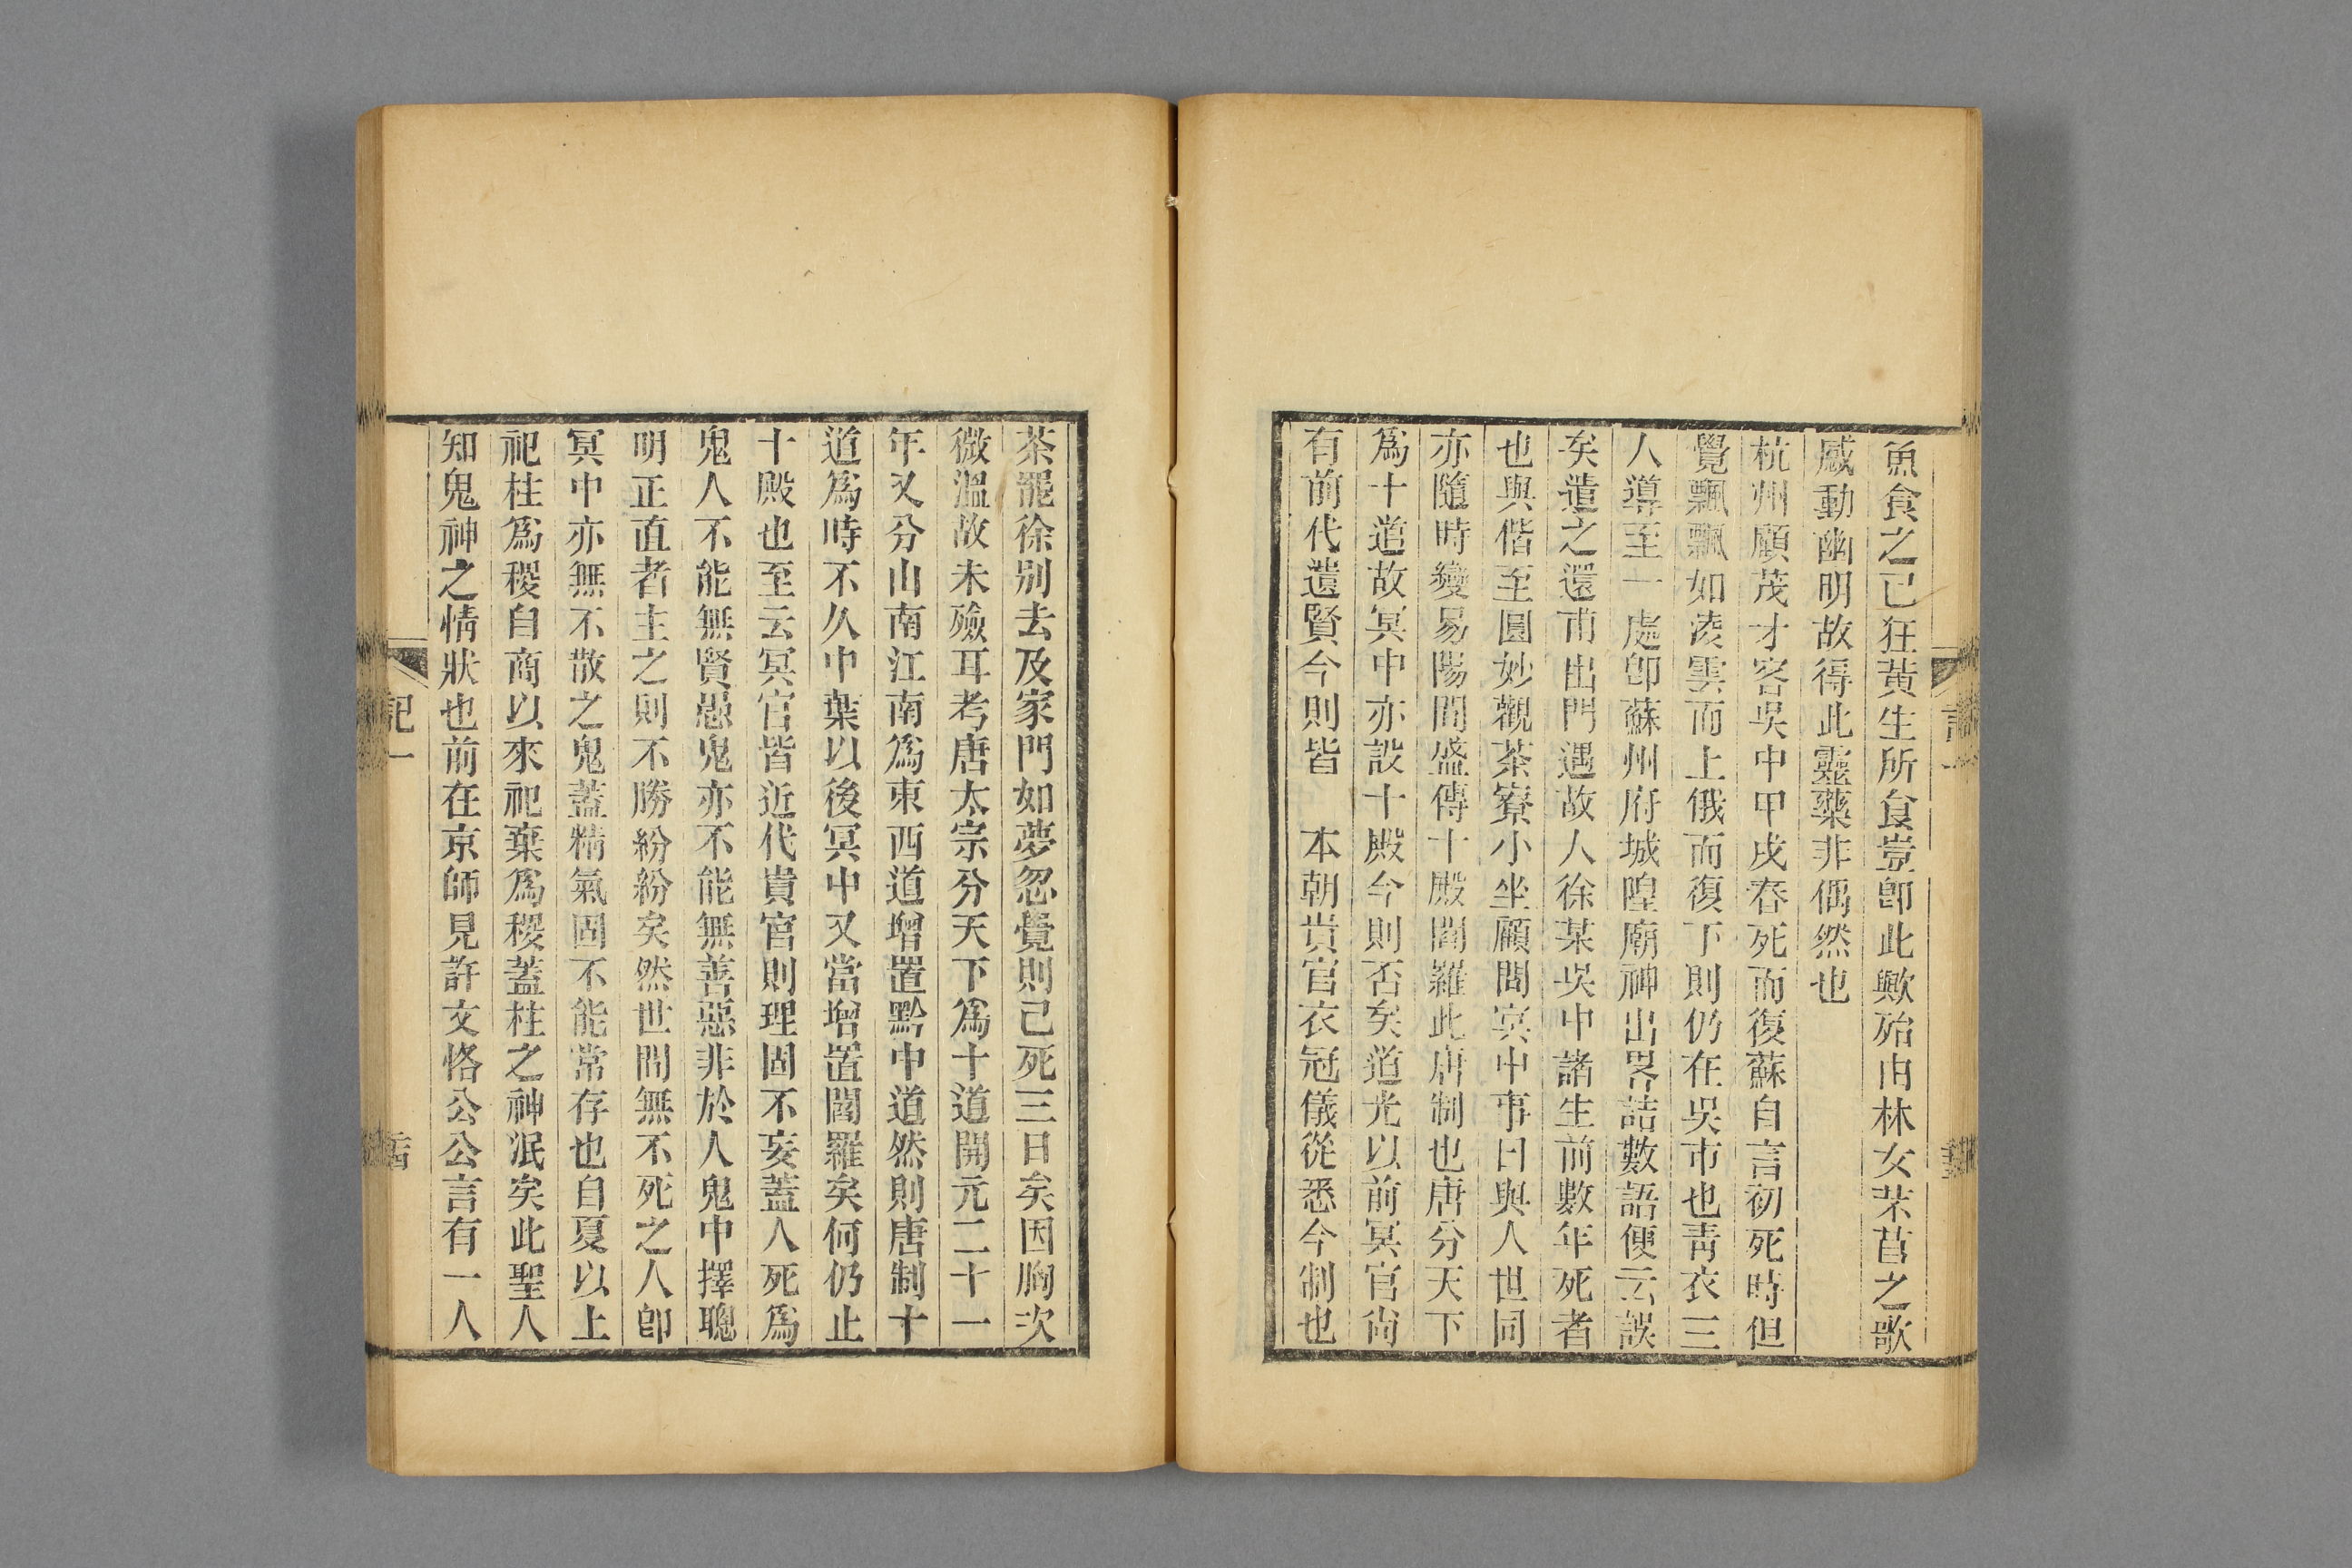 魚食之已狂黃生所食豈卽此歟殆由林女芣苢之歌
感動幽明故得此靈藥非偶然也
杭州顧茂才客吳中甲戌春死而復蘇自言初死時但
覺飄飄如淩雲而上俄而復下則仍在吳市也靑衣三
人導至一處卽蘇州府城隍廟神出畧詰數語便云誤
矣遣之還甫出門遇故人徐某吳中諸生前數年死者
也與偕至圓妙觀茶寮小坐顧問冥中事曰與人世同
亦隨時變易陽間盛傳十殿閻羅此唐制也唐分天下
爲十道故冥中亦設十殿今則否矣道光以前冥官尙
有前代遺賢今則皆　本朝貴官衣冠儀從悉今制也
茶罷徐別去及家門如夢忽覺則已死三日矣因胸次
微溫故未殮耳考唐太宗分天下爲十道開元二十一
年又分山南江南爲東西道增置黔中道然則唐制十
道爲時不久中葉以後冥中又當增置閻羅矣何仍止
十殿也至云冥官皆近代貴官則理固不妄蓋人死爲
鬼人不能無賢愚鬼亦不能無善惡非於人鬼中擇聰
明正直者主之則不勝紛紛矣然世間無不死之人卽
冥中亦無不散之鬼蓋精氣固不能常存也自夏以上
祀柱爲稷自商以來祀棄爲稷蓋柱之神泯矣此聖人
知鬼神之情狀也前在京師見許文恪公公言有一人
記一